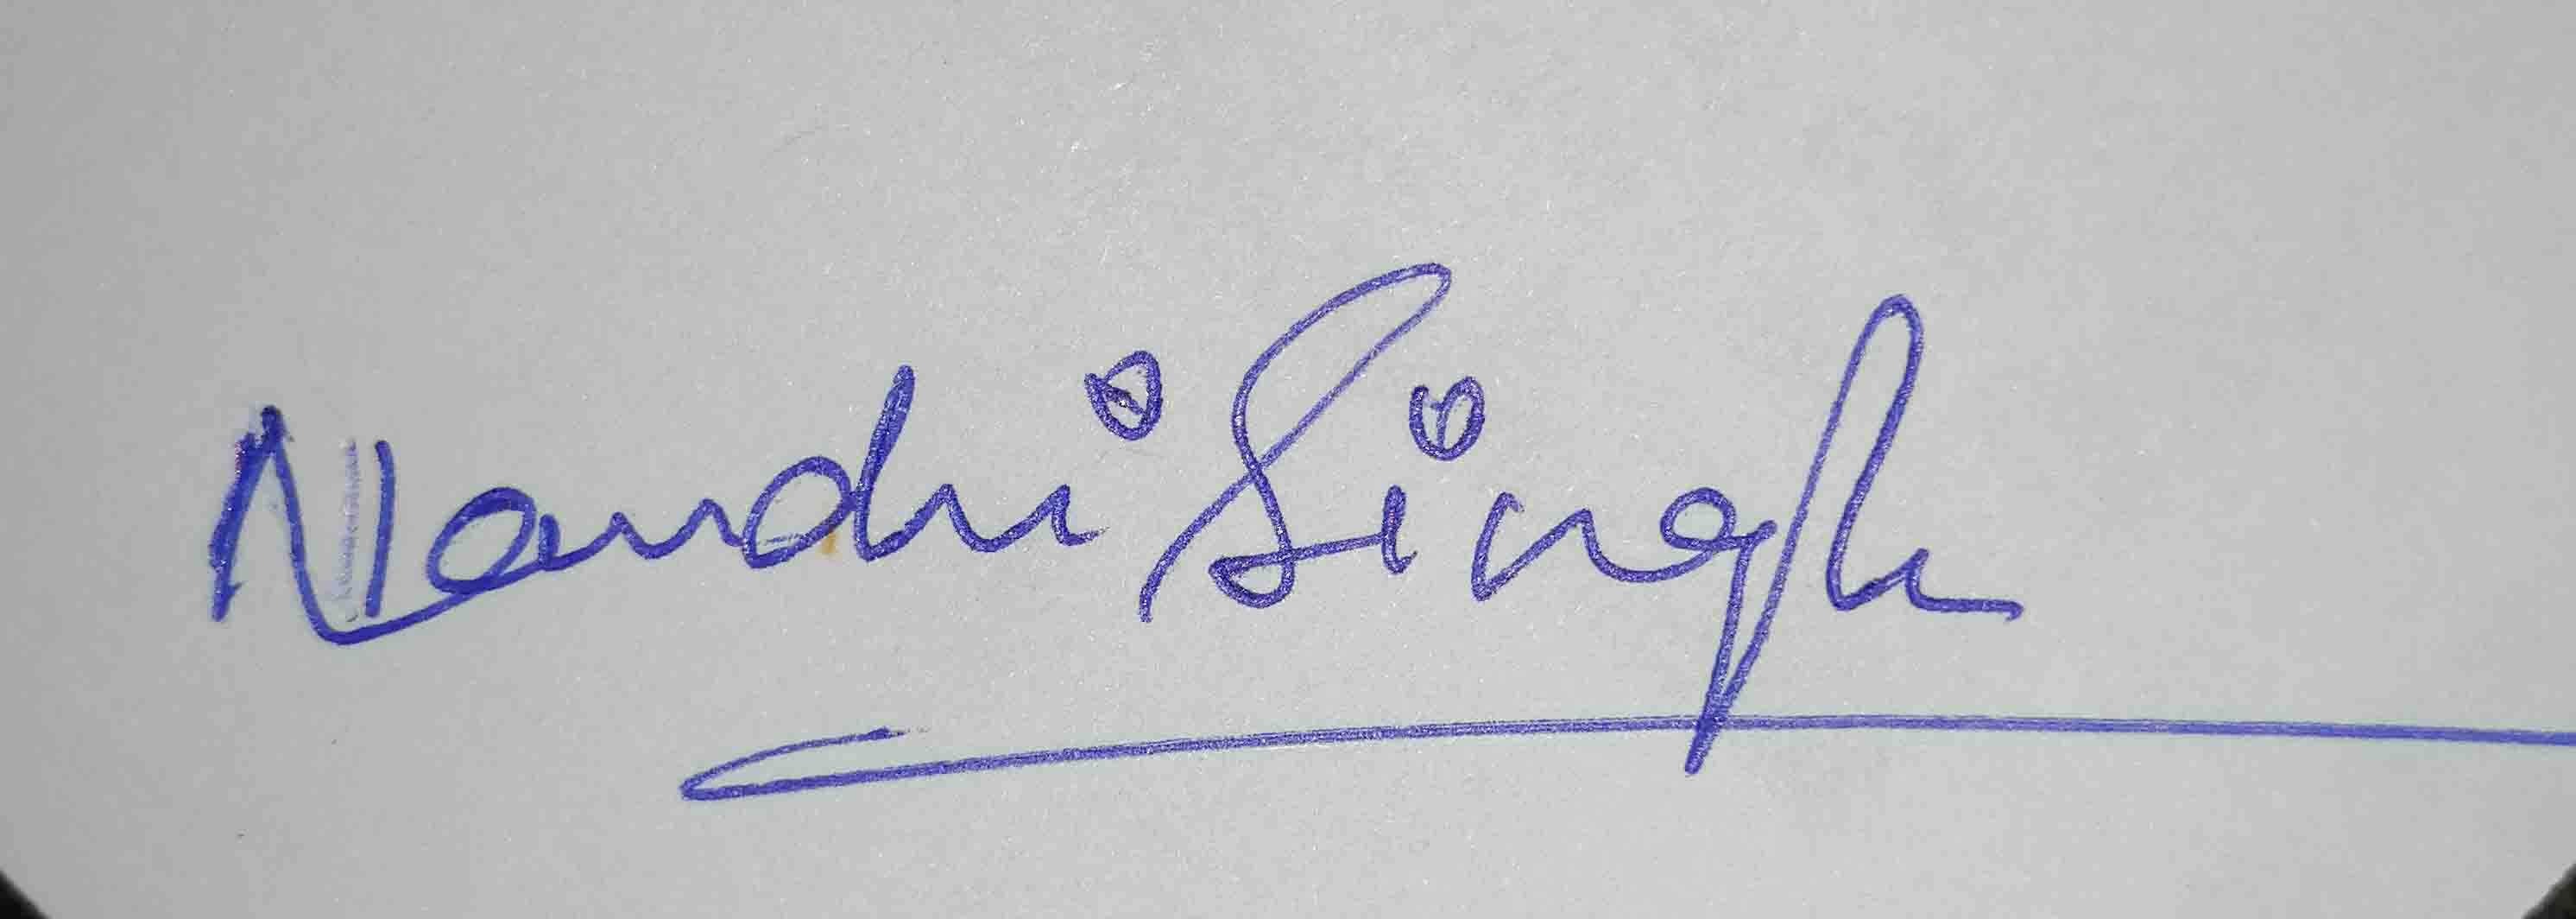 Nandni Singh